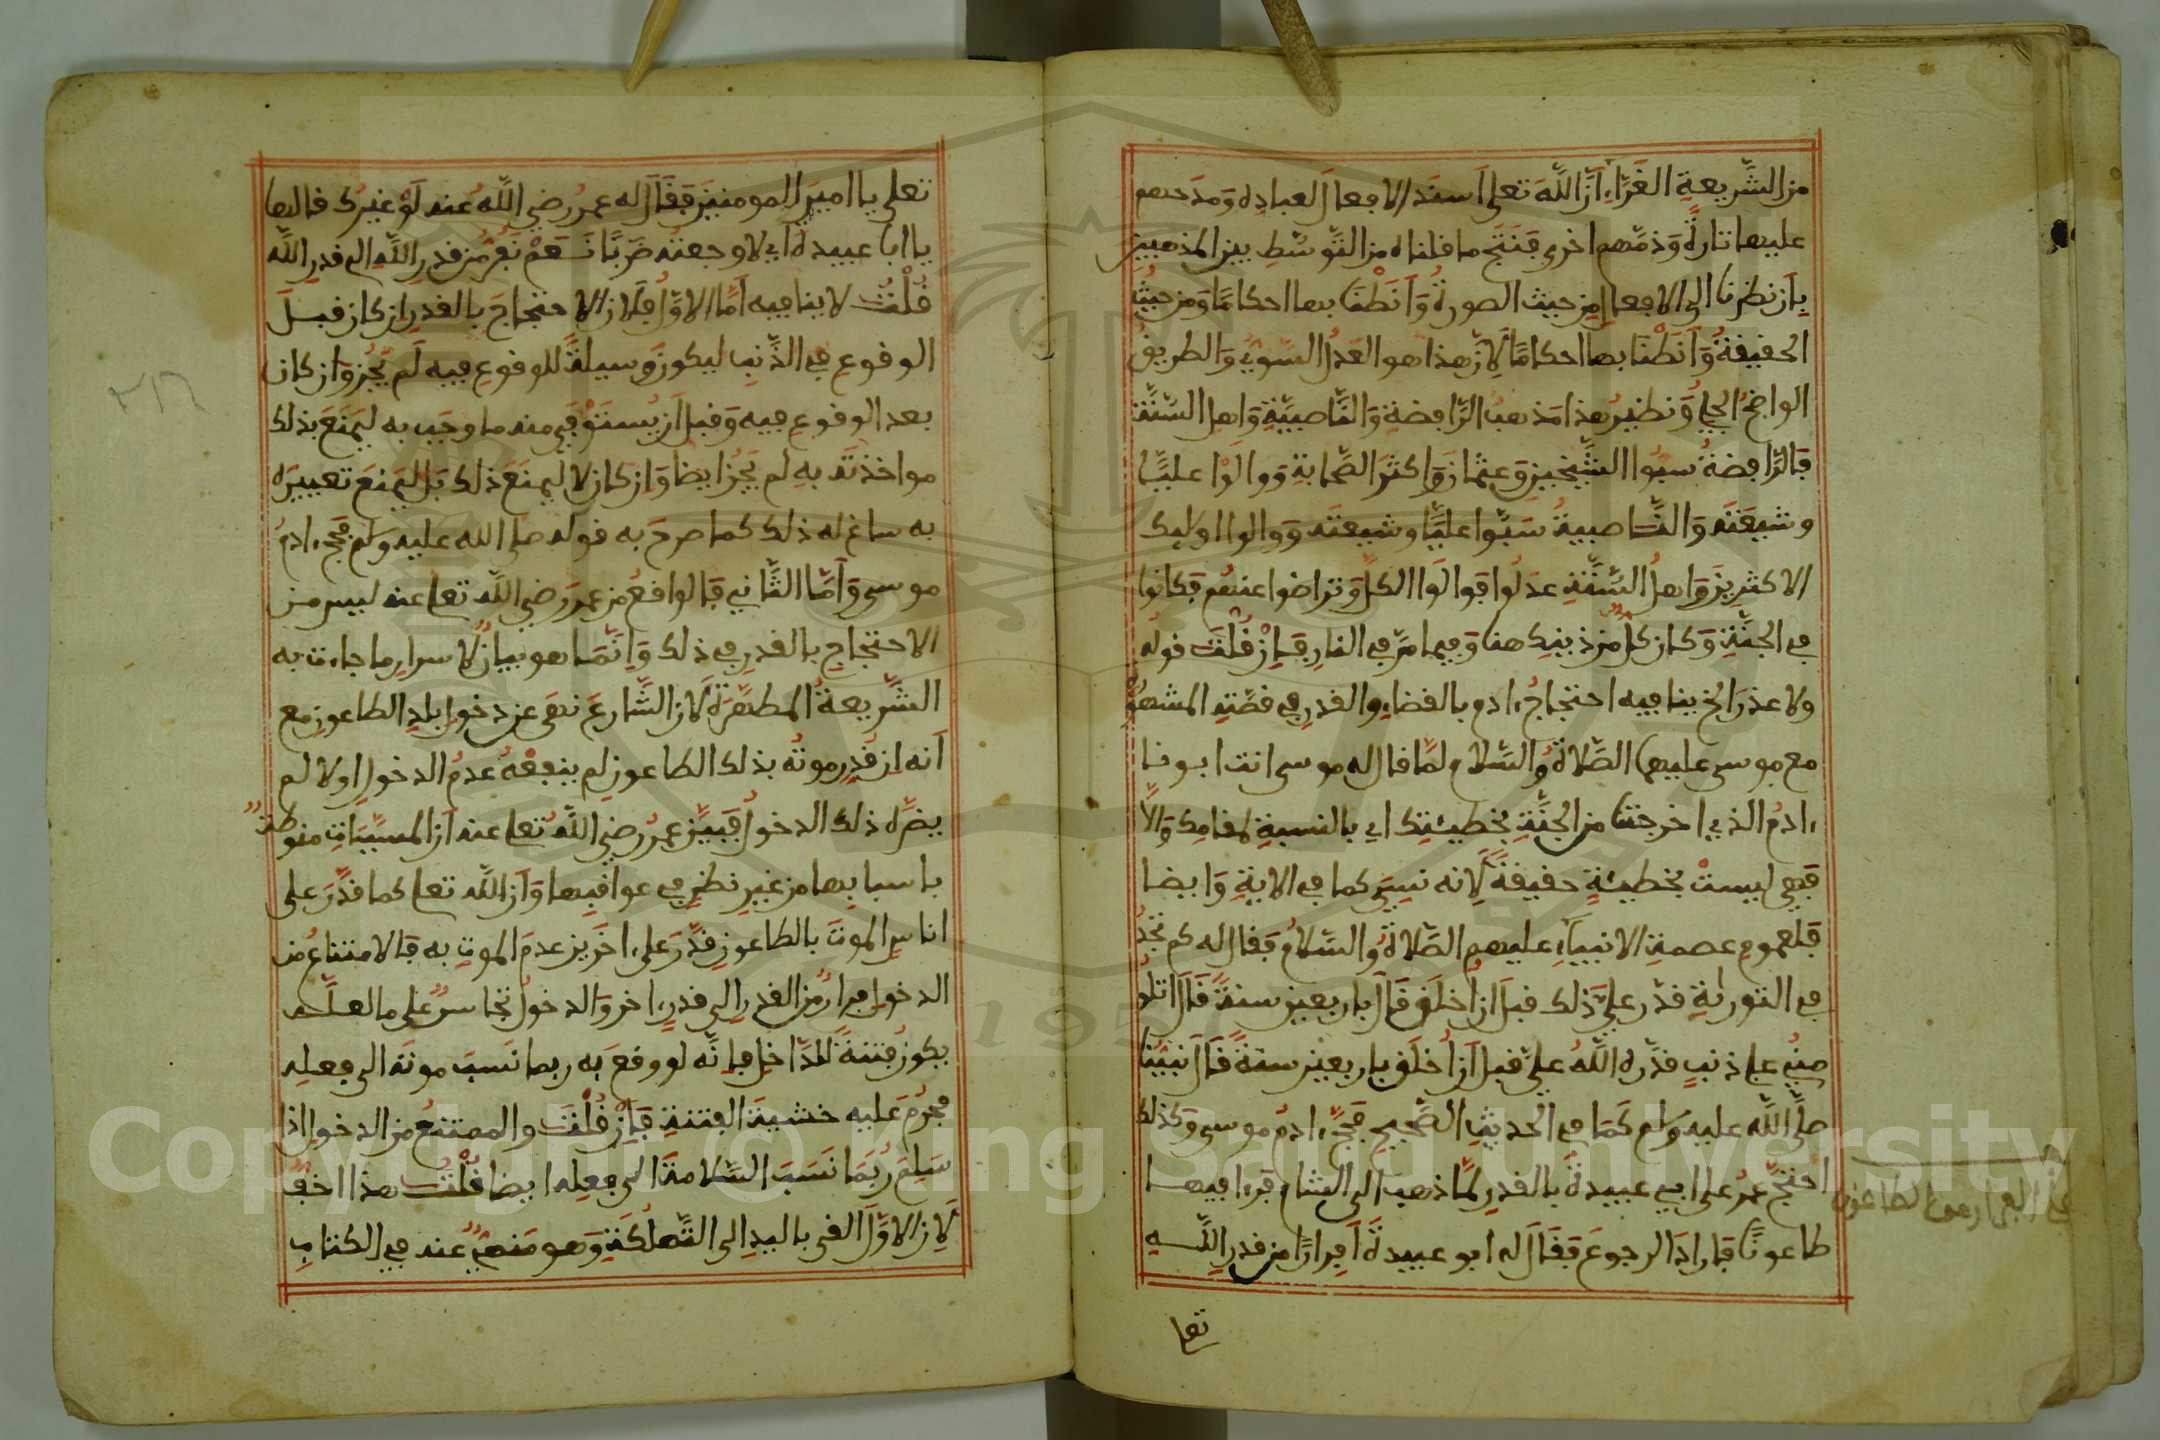 من الشريعة الغراء أن الله تعلى أسند الافعال لعباده ومدحهم
عليها تارة وذمهم اخرى فنتج ما قلناه من التوسط بين المذهبين
بأن نظرنا الى الافعال من حيث الصورة وأنطنا بها احكاما ومن حيث
الحقيقة وأنطنا بها احكاما لأن هذا هو العدل السوي والطريق
الواضح الجلي ونظير هذا مذهب الرافضة والناصبية واهل السنة
فالرافضة سبوا الشيخين وعثمان واكثر الصحابة ووالوا عليا
وشيعته والناصبية سبوا عليا وشيعته ووالوا اوليك
الاكثرين واهل السنة عدلوا فوالوا الكل وتراضوا عنهم فكانوا
في الجنة وكان كل من ذينك هنا وفيما مر في النار فإن قلت قوله
ولا عذر الخ ينافيه احتجاج ءادم بالقضاء والقدر في قصته المشهورة
مع موسى عليهما الصلاة والسلام لما قال له موسى انت ابونا
ءادم الذي اخرجتنا من الجنة بخطيئتك اي بالنسبة لمقامك والا
فهي ليست بخطيئة حقيقة لانه نسي كما في الاية وايضا
فلعموم عصمة الانبياء عليهم الصلاة والسلام فقال له كم تجد
في التورية قدر علي ذلك قبل ان اخلق قال باربعين سنة قال اتلو
منى على ذنب قدره الله علي قبل أن أخلق باربعين سنة قال نبينا
صلى الله عليه وسلم كما في الحديث الصحيح فحج ءادم موسى وكذلك
احتج عمر على ابي عبيدة بالقدر لما ذهب الى الشام فرءا فيها
طاعونا فاراد الرجوع فقال له ابو عبيدة أفرارا من قدر الله
تعلى
تعلى يا امير المومنين فقال له عمر رضي الله عنه لو غيرك قالها
يا ابا عبيدة اي لاوجعته ضربا نعم نفر من قدر الله الى قدر الله
قلت لا ينافيه أما الاول فلان الاحتجاج بالقدر إن كان قبل
الوقوع في الذنب ليكون وسيلة للوقوع فيه لم يجز وان كان
بعد الوقوع فيه وقبل أن يستوفي منه ما وجب به ليمنع بذلك
مواخذته به لم يجز ايضا وإن كان لا ليمنع ذلك بل ليمنع تعييره
به ساغ له ذلك كما صرح به قوله صلى الله عليه وسلم فحج ءادم
موسى وأما الثاني فالواقع من عمر رضي الله تعلى عنه ليس من
الاحتجاج بالقدر في ذلك وإنما هو بيان لاسرار ما جاءت به
الشريعة المطهرة لان الشارع نهى عن دخول بلد الطاعون مع
أنه إن قدر موته بذلك الطاعون لم ينفعه عدم الدخول او لا لم
يضره ذلك الدخول فبين عمر رضي الله تعلى عنه أن المسببات منوطة
باسبابها من غير نظر في عواقبها وأن الله تعلى كما قدر على
اناس الموت بالطاعون قدر على ءاخرين عدم الموت به فالامتناع من
الدخول فرار من القدر الى قدر ءاخر والدخول تجاسر على ما لعله
يكون فتنة للداخل فإنه لو وقع به ربما نسب موته الى فعله
فحرم عليه خشية الفتنة فإن قلت والممتنع من الدخول اذا
سلم ربما نسب السلامة الى فعله ايضا قلت هذا اخف
لان الاول القى باليد الى التهلكة وهو منهي عنه في الكتاب